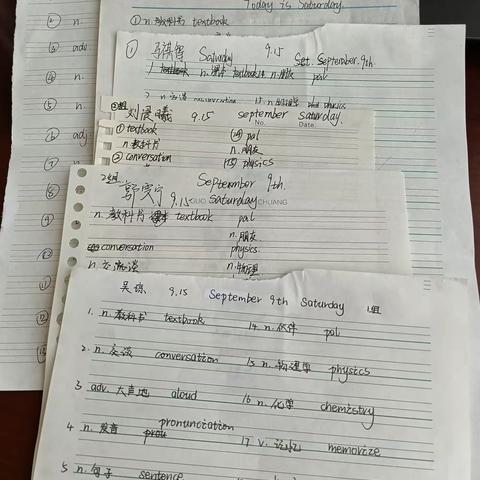 Today is Saturday.
① n. 教科书 textbook
② n.
③ adv
④ n.
⑤ n.
⑥ adj
⑦ n.
⑧ n.
⑨
⑩
⑪
⑫
① Saturday 9.15 Sat. September. 9th.
1. n. 课本 textbook 14 n. 朋友 pal
2 n. 交谈 conversation 15. n. 物理学 physics
刘晨曦 9.15 september saturday.
No. Date.
① textbook ⑭ pal
n. 教科书 n. 朋友
② conversation ⑮ physics
2组 September 9th.
郭奕宁 9.15 saturday
GUO CHUANG
n. 教科书 课本 textbook pal
n. 朋友
conversation physics.
n. 交谈 n. 物理
吴琼 9.15 September 9th Saturday 1组
1. n. 教科书 textbook 14. n. 伙伴 pal
2. n. 交谈 conversation 15 n. 物理学 physics
3 adv. 大声地 aloud 16 n. 化学 chemistry
pronunciation
4 n. 发音 prou 17 v. 记忆 memorize
5 n. 句子 sentence